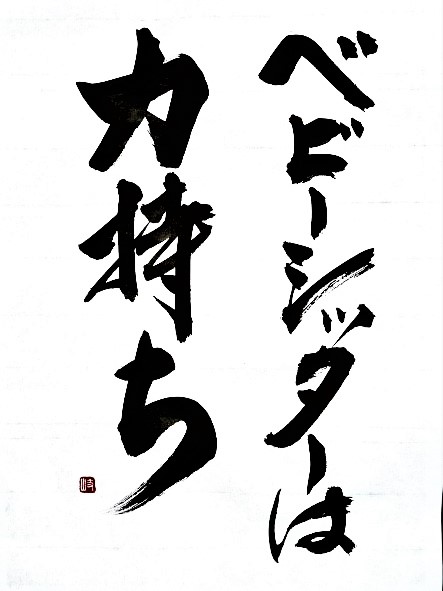 ベビーシッターは
力持ち